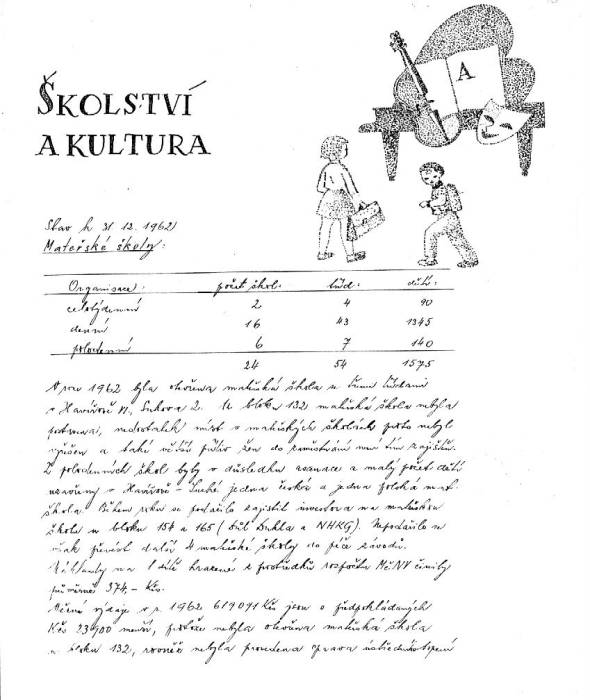 ŠKOLSTVÍ
A KULTURA
A
Stav k 31 12. 1962
Mateřské školy:
Organisace: počet škol: tříd: dětí:
celotýdenní 2 4 90
denní 16 43 1345
polodenní 6 7 140
24 54 1575
V roce 1962 byla otevřena mateřská škola se třemi třídami
v Havířově VI, Sukova 2. U bloku 132 mateřská škola nebyla
postavena, nedostatek míst v mateřských školách proto nebyl
vyřešen a také větší příliv žen do zaměstnání není tím zajištěn.
Z polodenních škol byly v důsledku a malý počet dětí
uzavřeny v Havířově - Suché jedna česká a jedna polská mat.
škola. Během roku se podařilo zajistit investora na mateřskou
školu u bloku 154 a 165 (Důl Dukla a NHKG). Nepodařilo se
však převést další 4 mateřské školy do péče závodů.
Náklady na 1 dítě hrazené z prostředků rozpočtu MěNV činily
průměrně 374,- Kčs.
Věcné výdaje v r. 1962 619091 Kčs jsou o předpokládaných
Kčs 23900 menší, protože nebyla otevřena mateřská škola
u bloku 132, rovněž nebyla provedena oprava ústředního topení